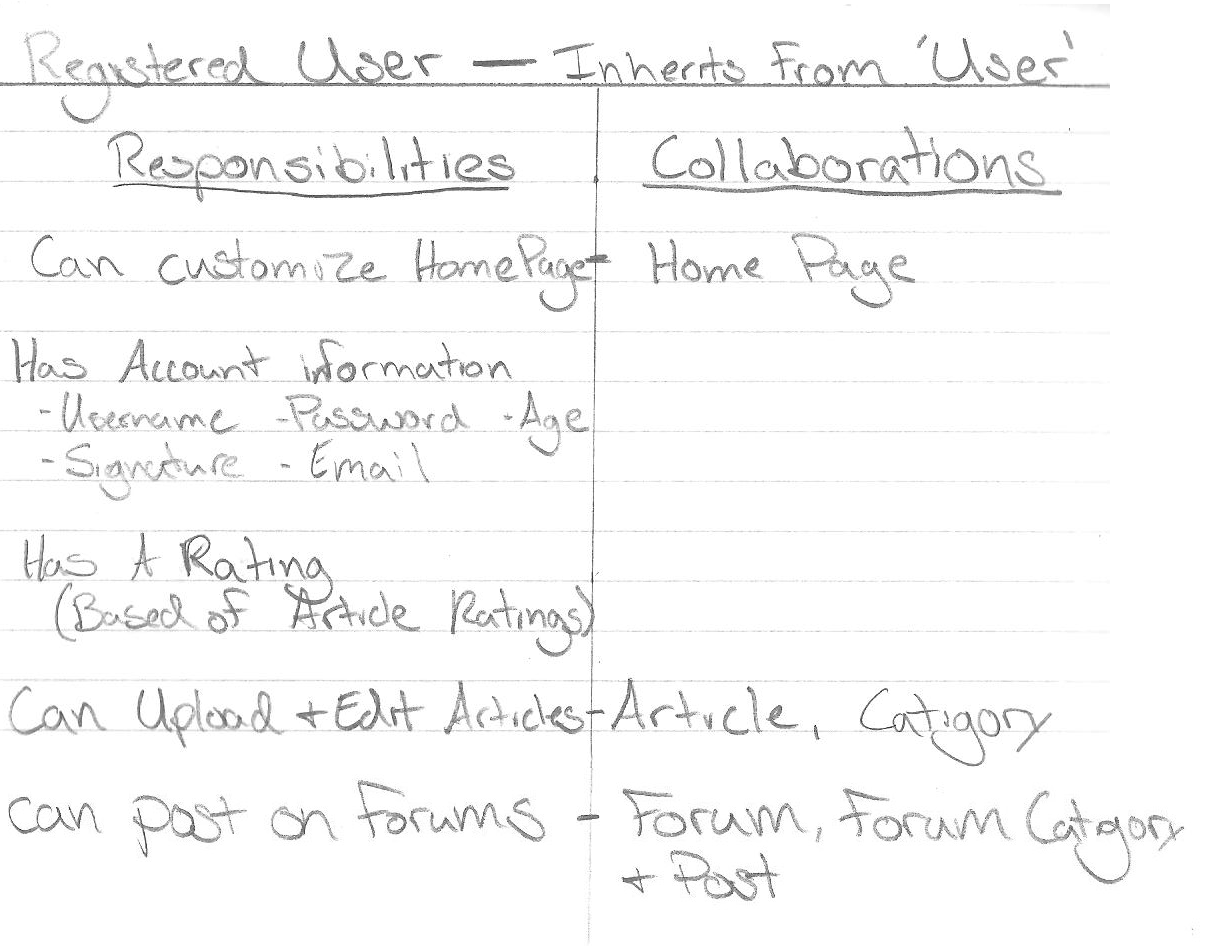 Registered User — Inherits From 'User'
Responsibilities Collaborations
Can customize HomePage - Home Page
Has Account information
- Username - Password - Age
- Signature - Email
Has A Rating
(Based of Article Ratings)
Can Upload + Edit Articles - Article, Catigory
can post on Forums - Forum, Forum Catgory
+ Post